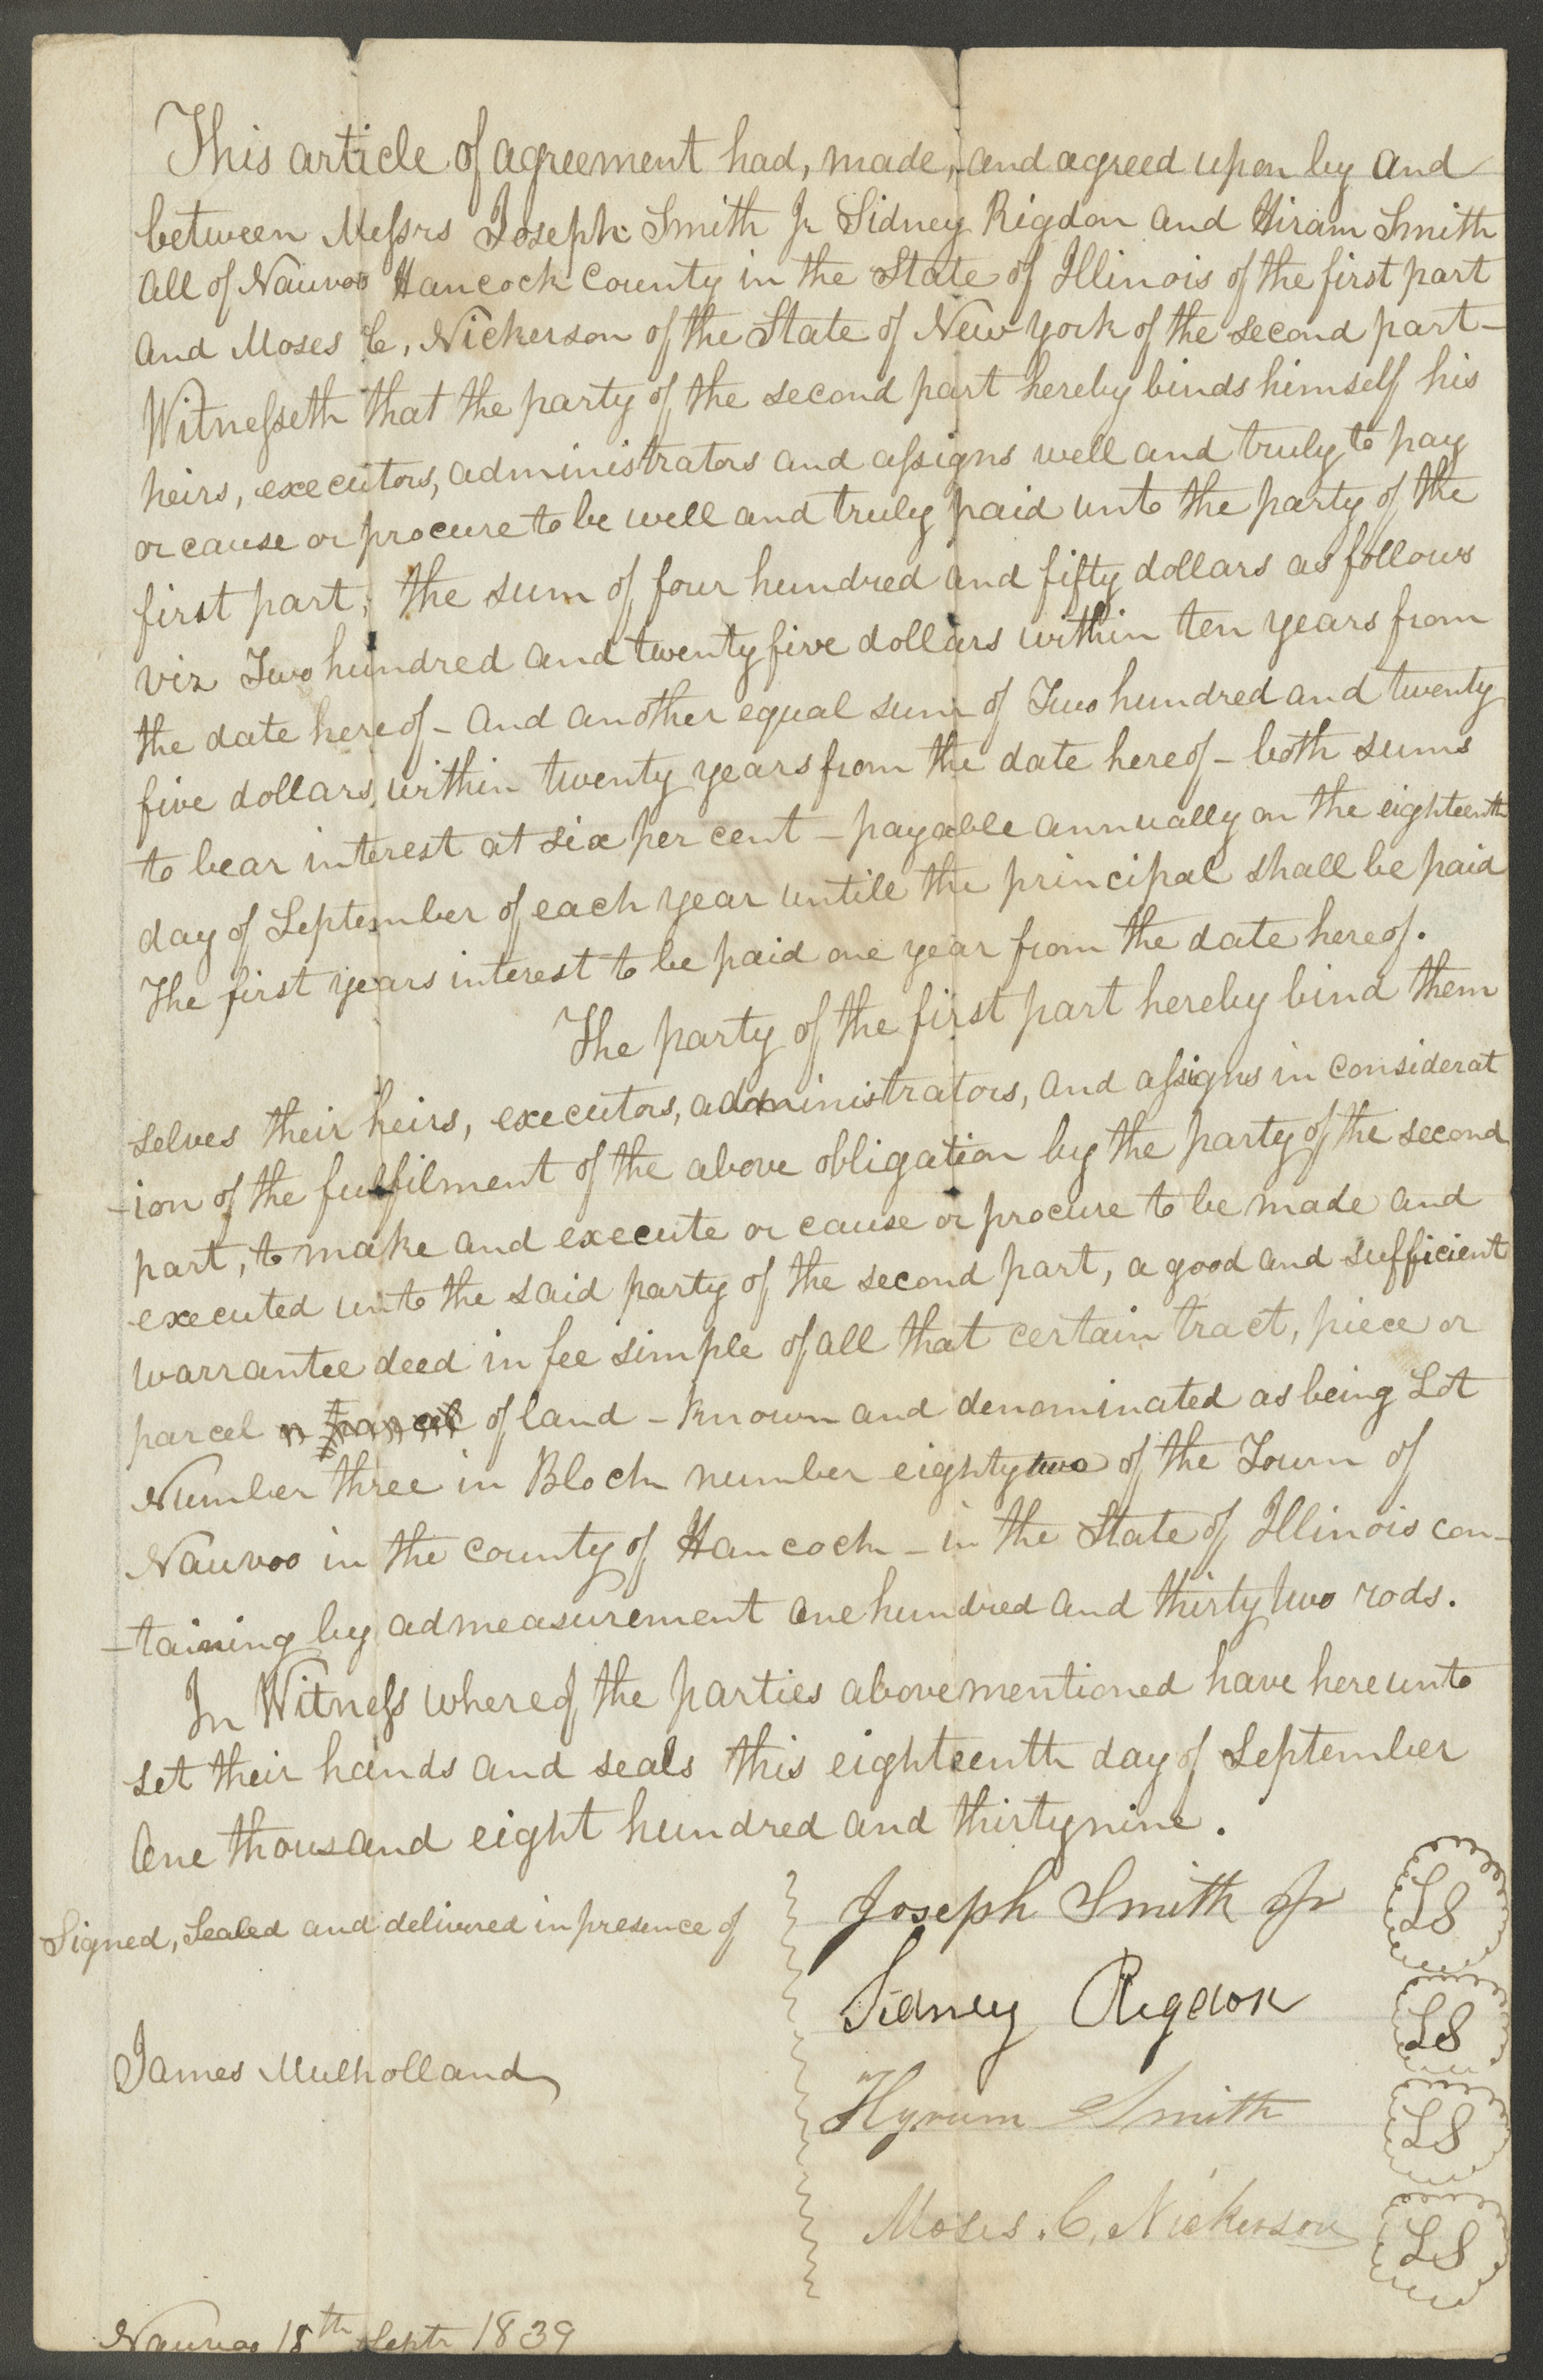 This article of agreement had, made, and agreed upon by and
between Messrs Joseph Smith Jr Sidney Rigdon and Hiram Smith
all of Nauvoo Hancock County in the State of Illinois of the first part
and Moses C, Nickerson of the State of New York of the second part—
Witnesseth that the party of the second part hereby binds himself his
heirs, executors, administrators and assigns well and truly to pay
or cause or procure to be well and truly paid unto the party of the
first part, the sum of four hundred and fifty dollars as follows
viz Two hundred and twenty five dollars within ten years from
the date hereof – and another equal sum of Two hundred and twenty
five dollars, within twenty years from the date hereof – both sums
to bear interest at six per cent – payable annually on the eighteenth
day of September of each year untill the principal shall be paid
The first years interest to be paid one year from the date hereof.
The party of the first part hereby bind them
selves their heirs, executors, administrators, and assigns in considerat
-ion of the fulfilment of the above obligation by the party of the second
part, to make and execute or cause or procure to be made and
executed unto the said party of the second part, a good and sufficient
warrantee deed in fee simple of all that certain tract, piece or
parcel or parcel of land – known and denominated as being Lot
Number three in Block number eighty two of the Town of
Nauvoo in the county of Hancock – in the State of Illinois con-
-taining by admeasurement one hundred and thirty two rods.
In Witness whereof the parties abovementioned have hereunto
set their hands and seals this eighteenth day of September
One thousand eight hundred and thirty nine.
Signed, Sealed and delivered in presence of
Joseph Smith Jr LS
Sidney Rigdon LS
James Mulholland
Hyrum Smith LS
Moses. C. Nickerson LS
Nauvoo 18th Septr 1839